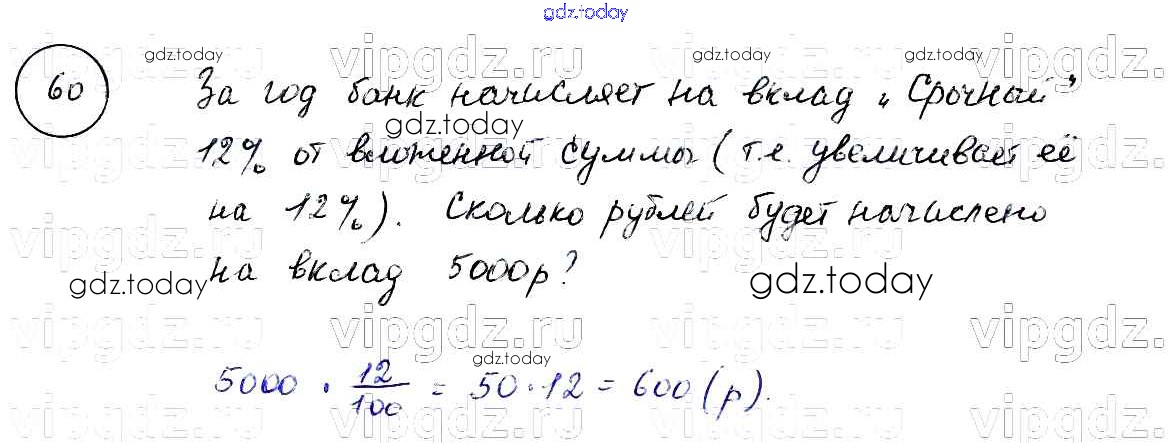 gdz.today
vipgdz.ru vipgdz.ru vipgdz.ru
gdz.today gdz.today gdz.today
60 За год банк начисляет на вклад „Срочный"
gdz.today
12% от вложенной суммы (т.е. увеличивает её
на 12%). Сколько рублей будет начислено
на вклад 5000р?
gdz.today gdz.today
vipgdz.ru vipgdz.ru vipgdz.ru
gdz.today
5000 · 12/100 = 50 · 12 = 600 (р).